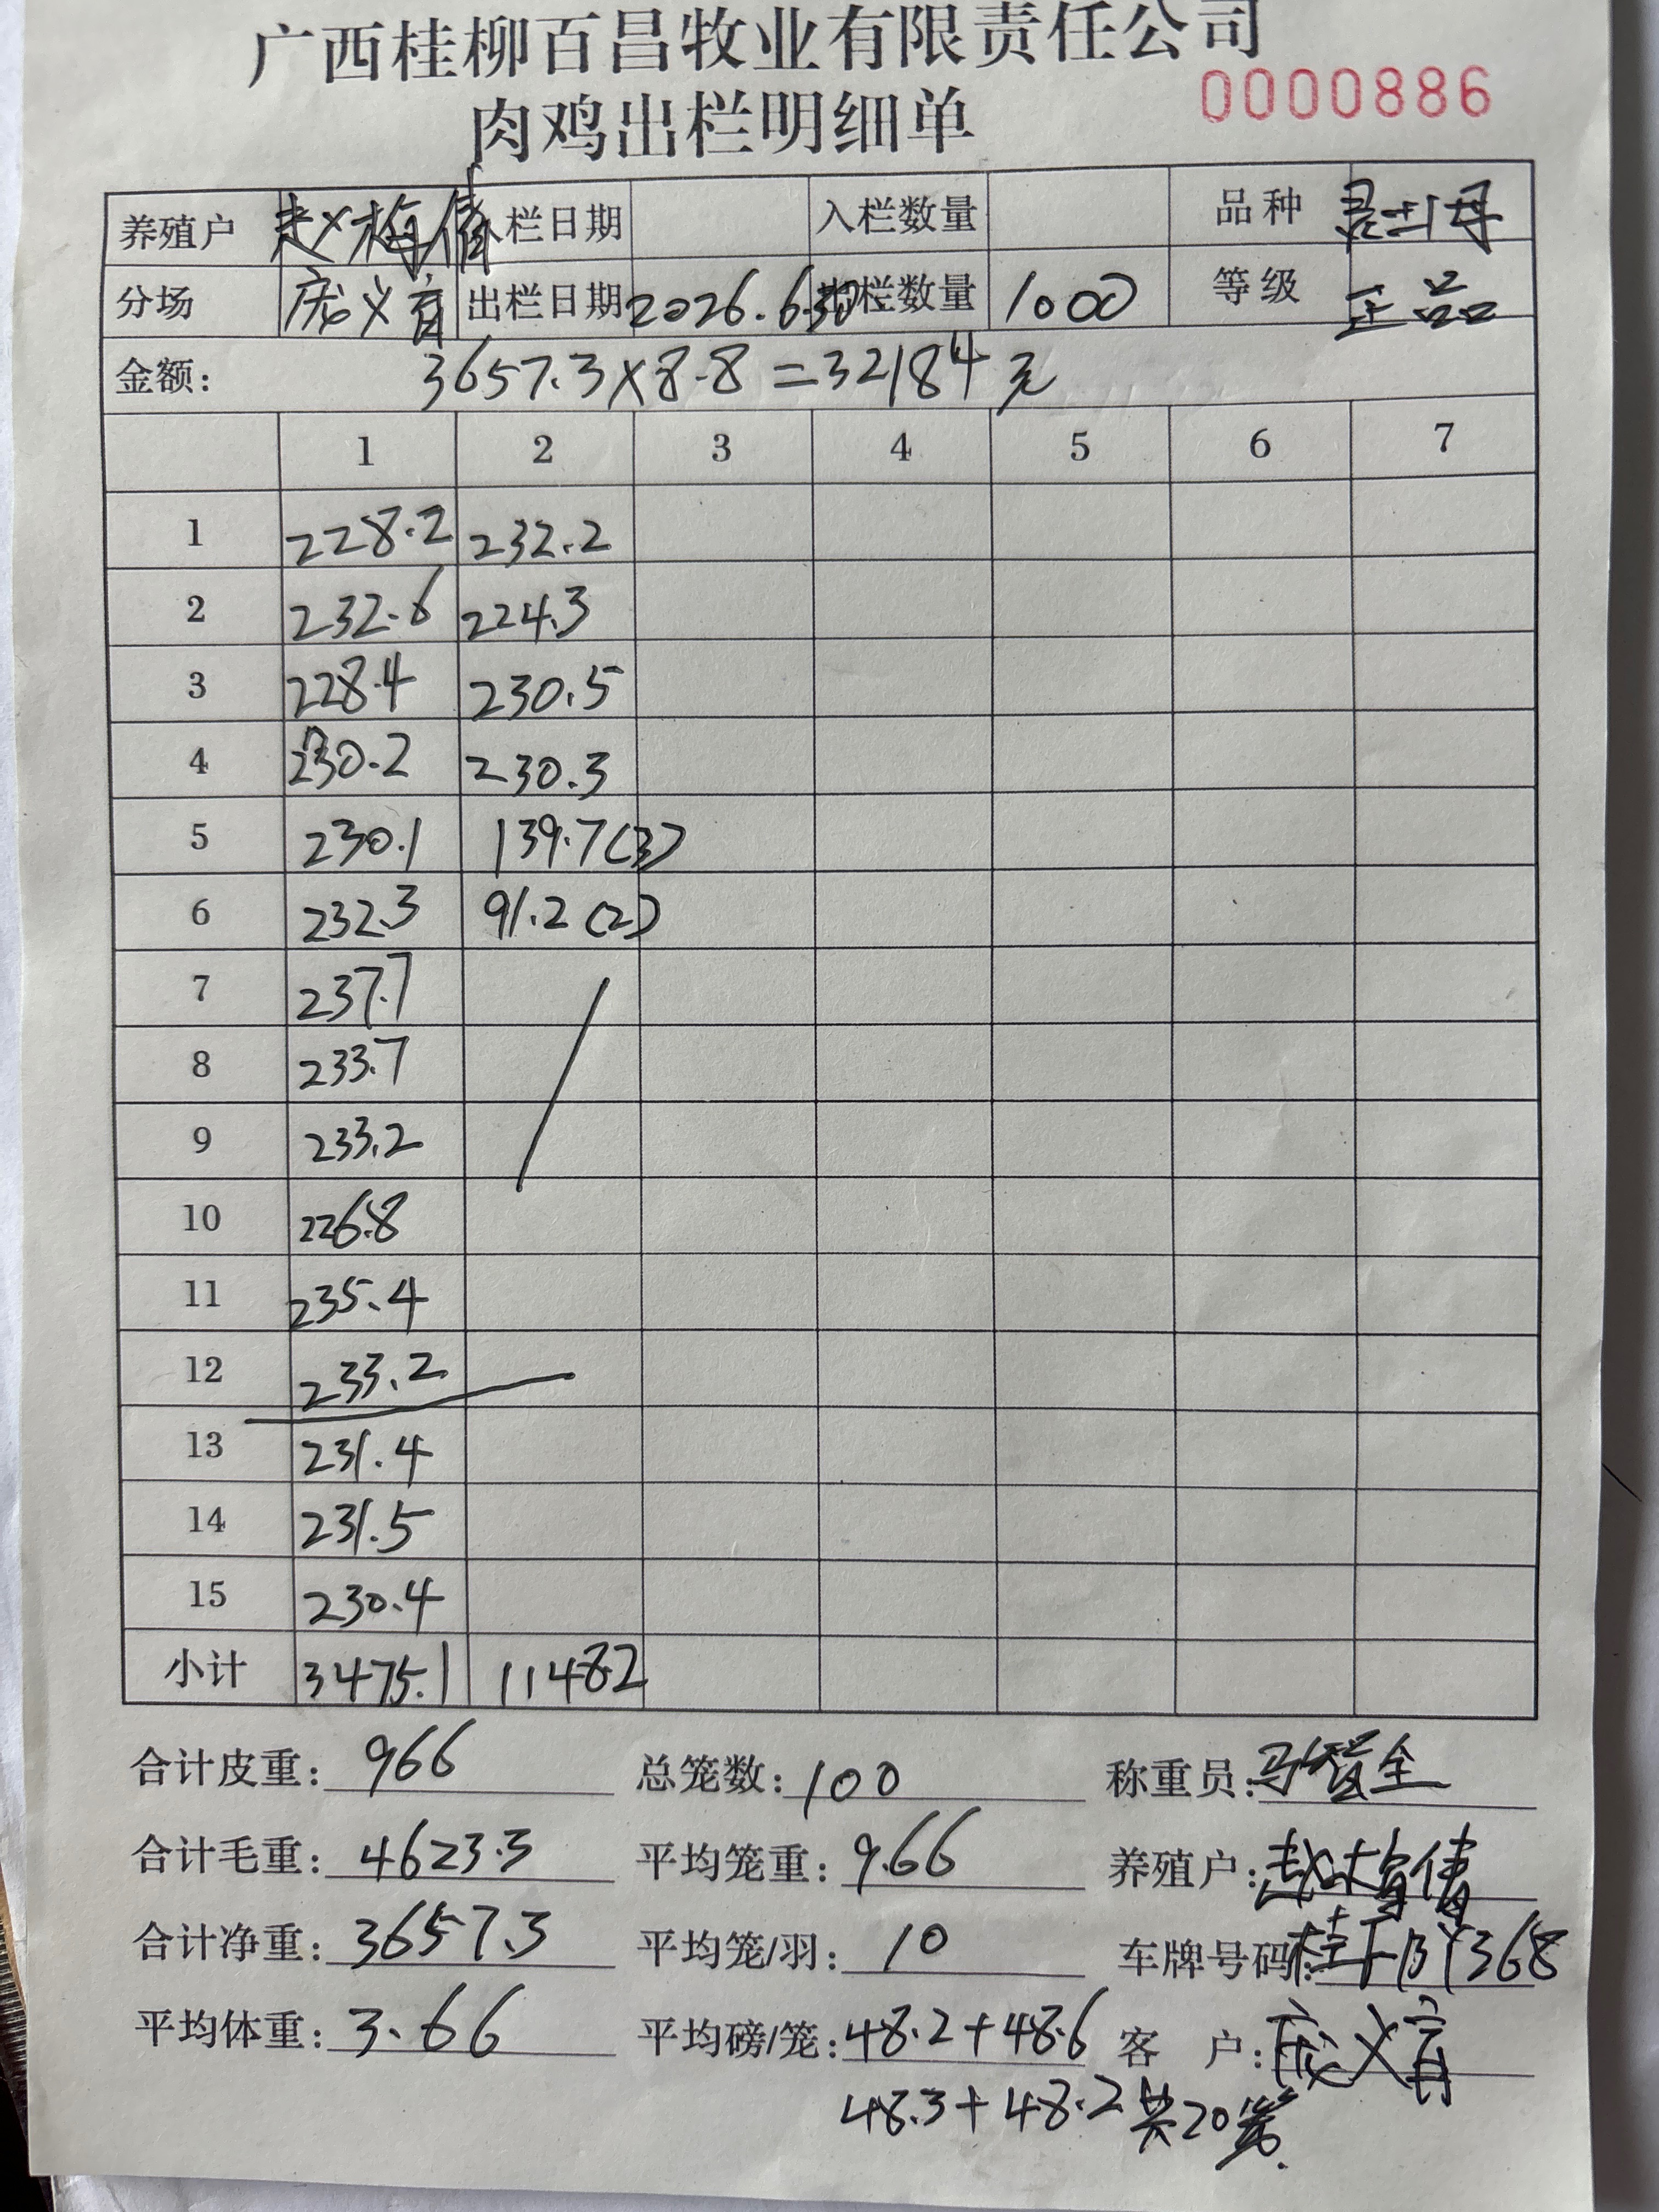 广西桂柳百昌牧业有限责任公司
肉鸡出栏明细单 0000886
养殖户 赵梅倩 入栏日期 入栏数量 品种
分场 庞义育 出栏日期 2026.6.30 出栏数量 1000 等级 正品
金额: 3657.3×8.8=32184元
1 2 3 4 5 6 7
1 228.2 232.2
2 232.6 224.3
3 228.4 230.5
4 230.2 230.3
5 230.1 139.7(3)
6 232.3 91.2(2)
7 237.7
8 233.7
9 233.2
10 226.8
11 235.4
12 233.2
13 231.4
14 231.5
15 230.4
小计 3475.1 1148.2
合计皮重: 966 总笼数: 100 称重员:
合计毛重: 4623.3 平均笼重: 9.66 养殖户: 赵梅倩
合计净重: 3657.3 平均笼/羽: 10 车牌号码:
平均体重: 3.66 平均磅/笼: 48.2+48.6 客户: 庞义育
48.3+48.2共20笼